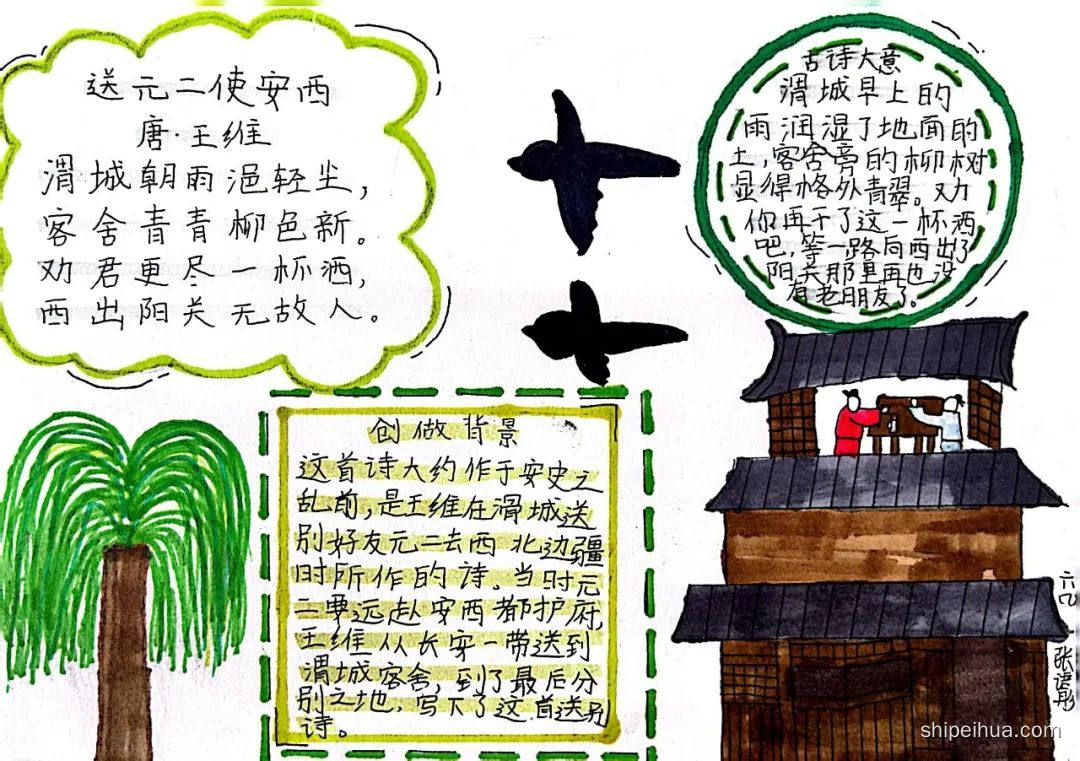 送元二使安西
唐·王维
渭城朝雨浥轻尘，
客舍青青柳色新。
劝君更尽一杯酒，
西出阳关无故人。
古诗大意
渭城早上的
雨润湿了地面的
土，客舍旁的柳树
显得格外青翠。劝
你再干了这一杯酒
吧，等一路向西出了
阳关那里再也没
有老朋友了。
创做背景
这首诗大约作于安史之
乱前，是王维在渭城送
别好友元二去西北边疆
时所作的诗。当时元
二要远赴安西都护府，
王维从长安一带送到
渭城客舍，到了最后分
别之地，写下了这首送别
诗。
张
shipeihua.com